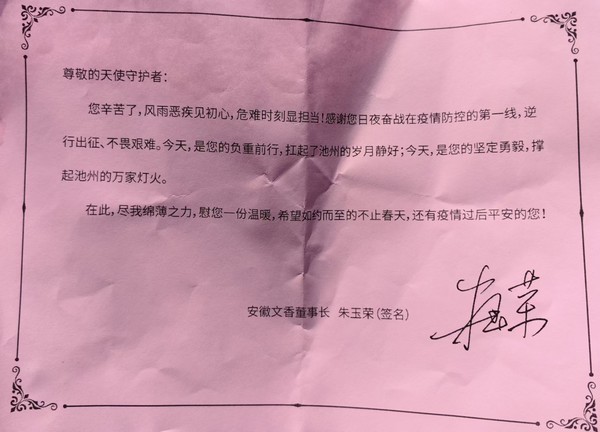 尊敬的天使守护者：
您辛苦了，风雨恶疾见初心，危难时刻显担当！感谢您日夜奋战在疫情防控的第一线，逆
行出征、不畏艰难。今天，是您的负重前行，扛起了池州的岁月静好；今天，是您的坚定勇毅，撑
起池州的万家灯火。
在此，尽我绵薄之力，慰您一份温暖，希望如约而至的不止春天，还有疫情过后平安的您！
安徽文香董事长 朱玉荣（签名）
朱玉荣